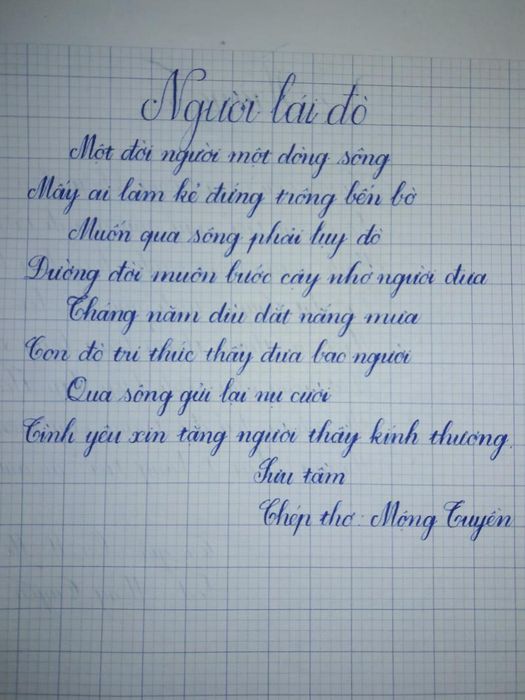 Người lái đò
Một đời người một dòng sông
Mấy ai làm kẻ đứng trông bến bờ
Muốn qua sông phải luỵ đò
Đường đời muôn bước cậy nhờ người đưa
Tháng năm dìu dắt nắng mưa
Con đò trí thức thầy đưa bao người
Qua sông gửi lại nụ cười
Tình yêu xin tặng người thầy kính thương.
Sưu tầm
Chép thơ: Mộng Truyền